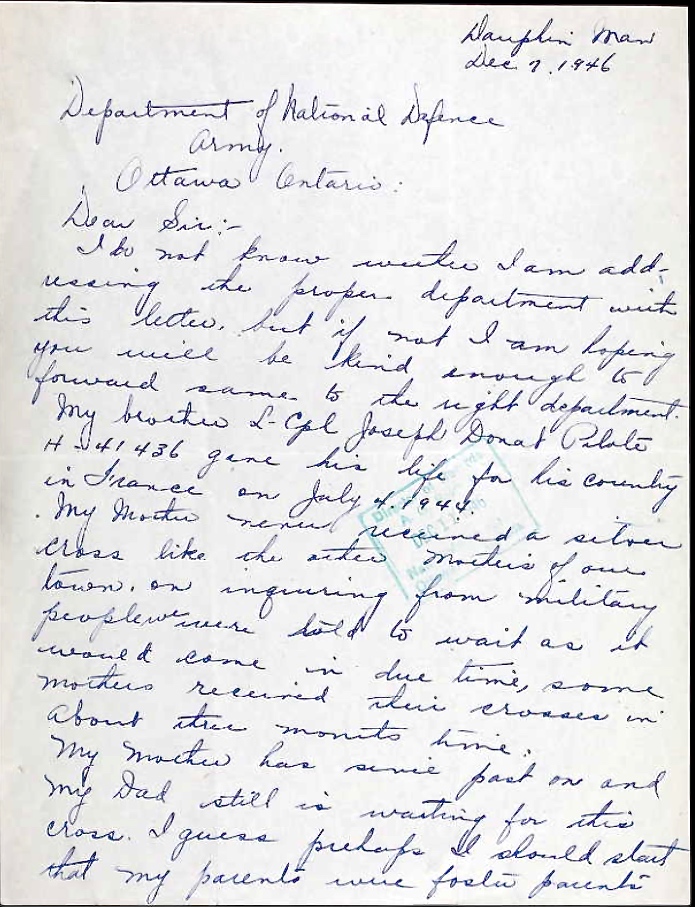 Dauphin Man
Dec 7, 1946
Department of National Defence
Army.
Ottawa Ontario:
Dear Sir:-
I do not know weather I am add-
ressing the proper department with
this letter, but if not I am hoping
you will be kind enough to
forward same to the right department.
My brother L-Cpl Joseph Donat Pilote
H-41436 gave his life for his country
in France on July 4, 1944.
My Mother never received a silver
cross like the other Mothers of our
town. on inquiring from military
people we were told to wait as it
would come in due time, some
mothers received their crosses in
about three months time.
My Mother has since past on and
My Dad still is waiting for this
cross. I guess prehaps I should start
that my parents were foster parents
DEC 1